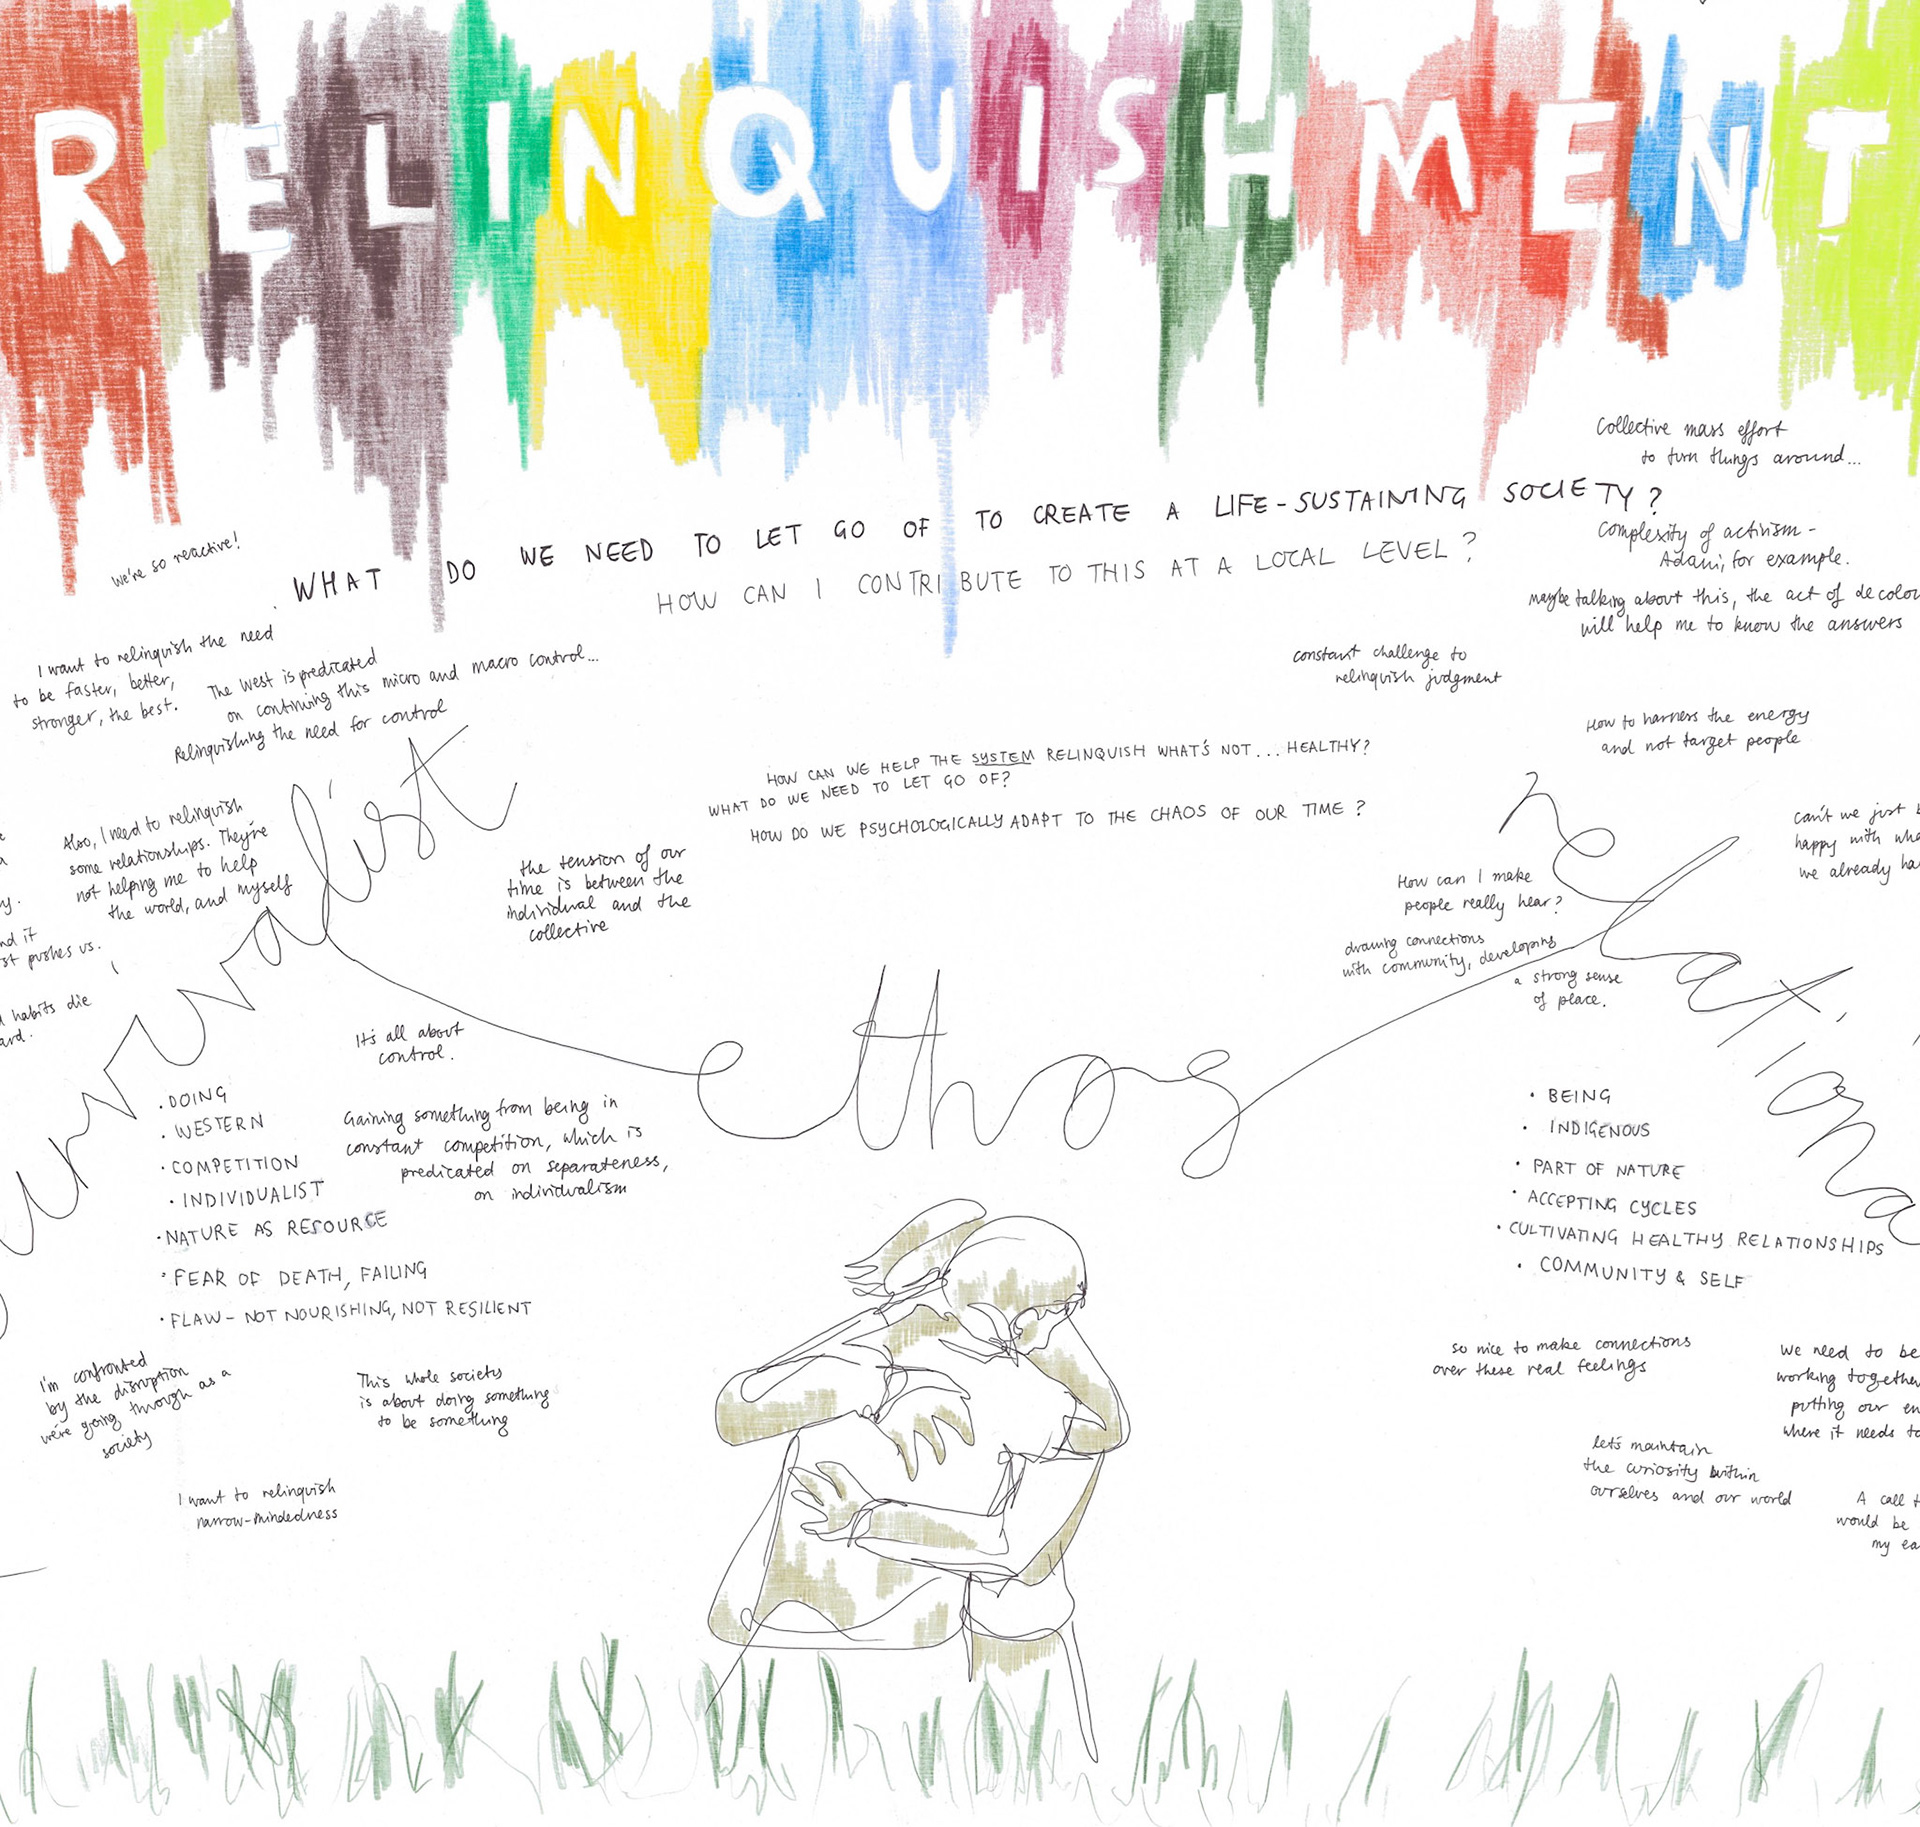 RELINQUISHMENT
WHAT DO WE NEED TO LET GO OF TO CREATE A LIFE-SUSTAINING SOCIETY?
HOW CAN I CONTRIBUTE TO THIS AT A LOCAL LEVEL?
Collective mass effort
to turn things around...
Complexity of activism -
Adani, for example.
maybe talking about this, the act of decolou
will help me to know the answers
constant challenge to
relinquish judgment
How to harness the energy
and not target people
we're so reactive!
I want to relinquish the need
to be faster, better,
stronger, the best.
The West is predicated
on continuing this micro and macro control...
Relinquishing the need for control
HOW CAN WE HELP THE SYSTEM RELINQUISH WHAT'S NOT... HEALTHY?
WHAT DO WE NEED TO LET GO OF?
HOW DO WE PSYCHOLOGICALLY ADAPT TO THE CHAOS OF OUR TIME?
Also, I need to relinquish
some relationships. They're
not helping me to help
the world, and myself
nd it
st pushes us.
habits die
ard.
the tension of our
time is between the
individual and the
collective
can't we just b
happy with wha
we already ha
How can I make
people really hear?
drawing connections
with community, developing
a strong sense
of place.
urvalist
ethos
relational
It's all about
control.
• DOING
• WESTERN
• COMPETITION
• INDIVIDUALIST
• NATURE AS RESOURCE
• FEAR OF DEATH, FAILING
• FLAW - NOT NOURISHING, NOT RESILIENT
Gaining something from being in
constant competition, which is
predicated on separateness,
on individualism
• BEING
• INDIGENOUS
• PART OF NATURE
• ACCEPTING CYCLES
• CULTIVATING HEALTHY RELATIONSHIPS
• COMMUNITY & SELF
I'm confronted
by the disruption
we're going through as a
society
This whole society
is about doing something
to be something
I want to relinquish
narrow-mindedness
so nice to make connections
over these real feelings
We need to be
working together
putting our en
where it needs to
let's maintain
the curiosity within
ourselves and our world
A call t
would be
my ea